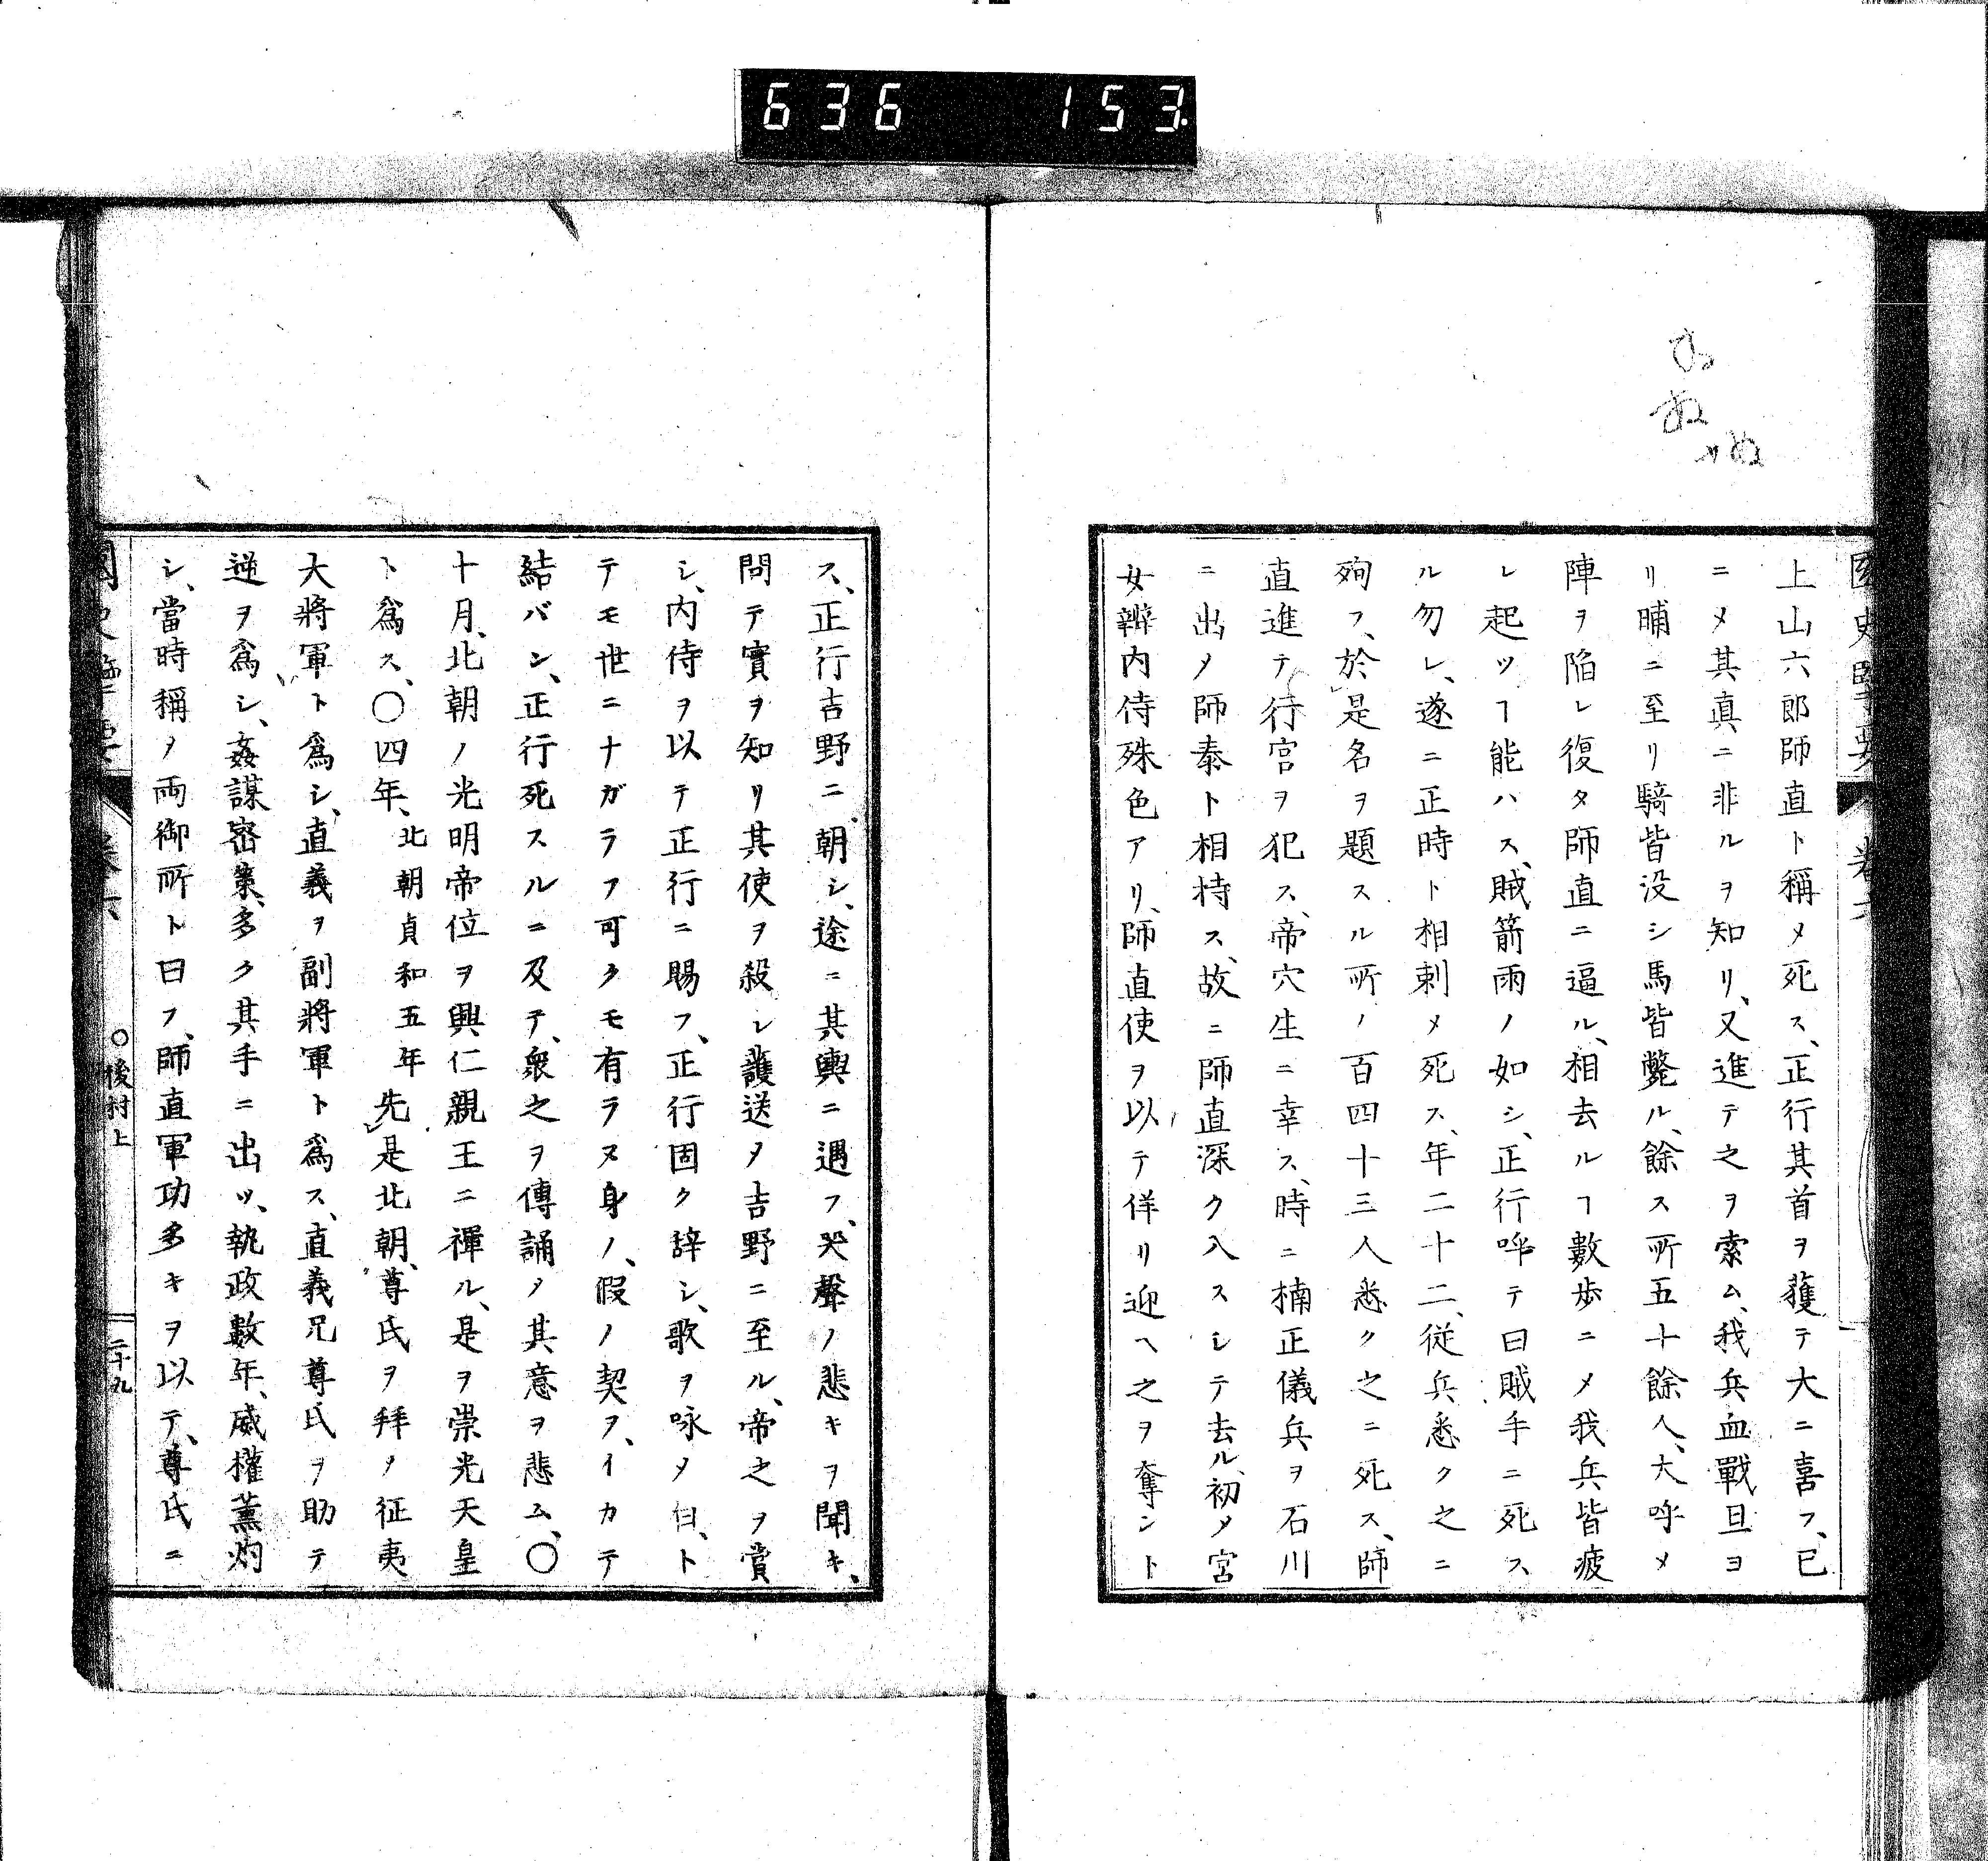 636 153
上山六郎師直ト稱〆死ス、正行其首ヲ獲テ大ニ喜フ、已
ニ〆其真ニ非ルヲ知リ、又進テ之ヲ索ム、我兵血戰旦ヨ
リ晡ニ至リ騎皆没シ馬皆斃ル、餘ス所五十餘人、大呼〆
陣ヲ陥レ復タ師直ニ逼ル、相去ルヿ數歩ニ〆我兵皆疲
レ起ツヿ能ハス、賊箭雨ノ如シ、正行呼テ曰賊手ニ死ス
ル勿レ、遂ニ正時ト相刺〆死ス、年二十二、従兵悉ク之ニ
殉フ、於是名ヲ題スル所ノ百四十三人悉ク之ニ死ス、師
直進テ行宮ヲ犯ス、帝穴生ニ幸ス、時ニ楠正儀兵ヲ石川
ニ出〆師泰ト相持ス、故ニ師直深ク入スシテ去ル、初メ宮
女辨内侍殊色アリ、師直使ヲ以テ佯リ迎ヘ之ヲ奪ント
ス、正行吉野ニ朝シ、途ニ其輿ニ遇フ、哭聲ノ悲キヲ聞キ、
問テ實ヲ知リ其使ヲ殺シ護送〆吉野ニ至ル、帝之ヲ賞
シ、内侍ヲ以テ正行ニ賜フ、正行固ク辞シ、歌ヲ咏〆曰、ト
テモ世ニナガラフ可クモ有ラヌ身ノ、假ノ契ヲ、イカテ
結バン、正行死スルニ及テ、衆之ヲ傳誦〆其意ヲ悲ム、〇
十月、北朝ノ光明帝位ヲ興仁親王ニ禪ル、是ヲ崇光天皇
ト爲ス、〇四年、北朝貞和五年先是北朝、尊氏ヲ拜〆征夷
大將軍ト爲シ、直義ヲ副將軍ト爲ス、直義兄尊氏ヲ助テ
逆ヲ爲シ、姦謀密策、多ク其手ニ出ツ、執政數年、威權薰灼
シ、當時稱〆両御所ト曰フ、師直軍功多キヲ以テ、尊氏ニ
〇後村上
二十九